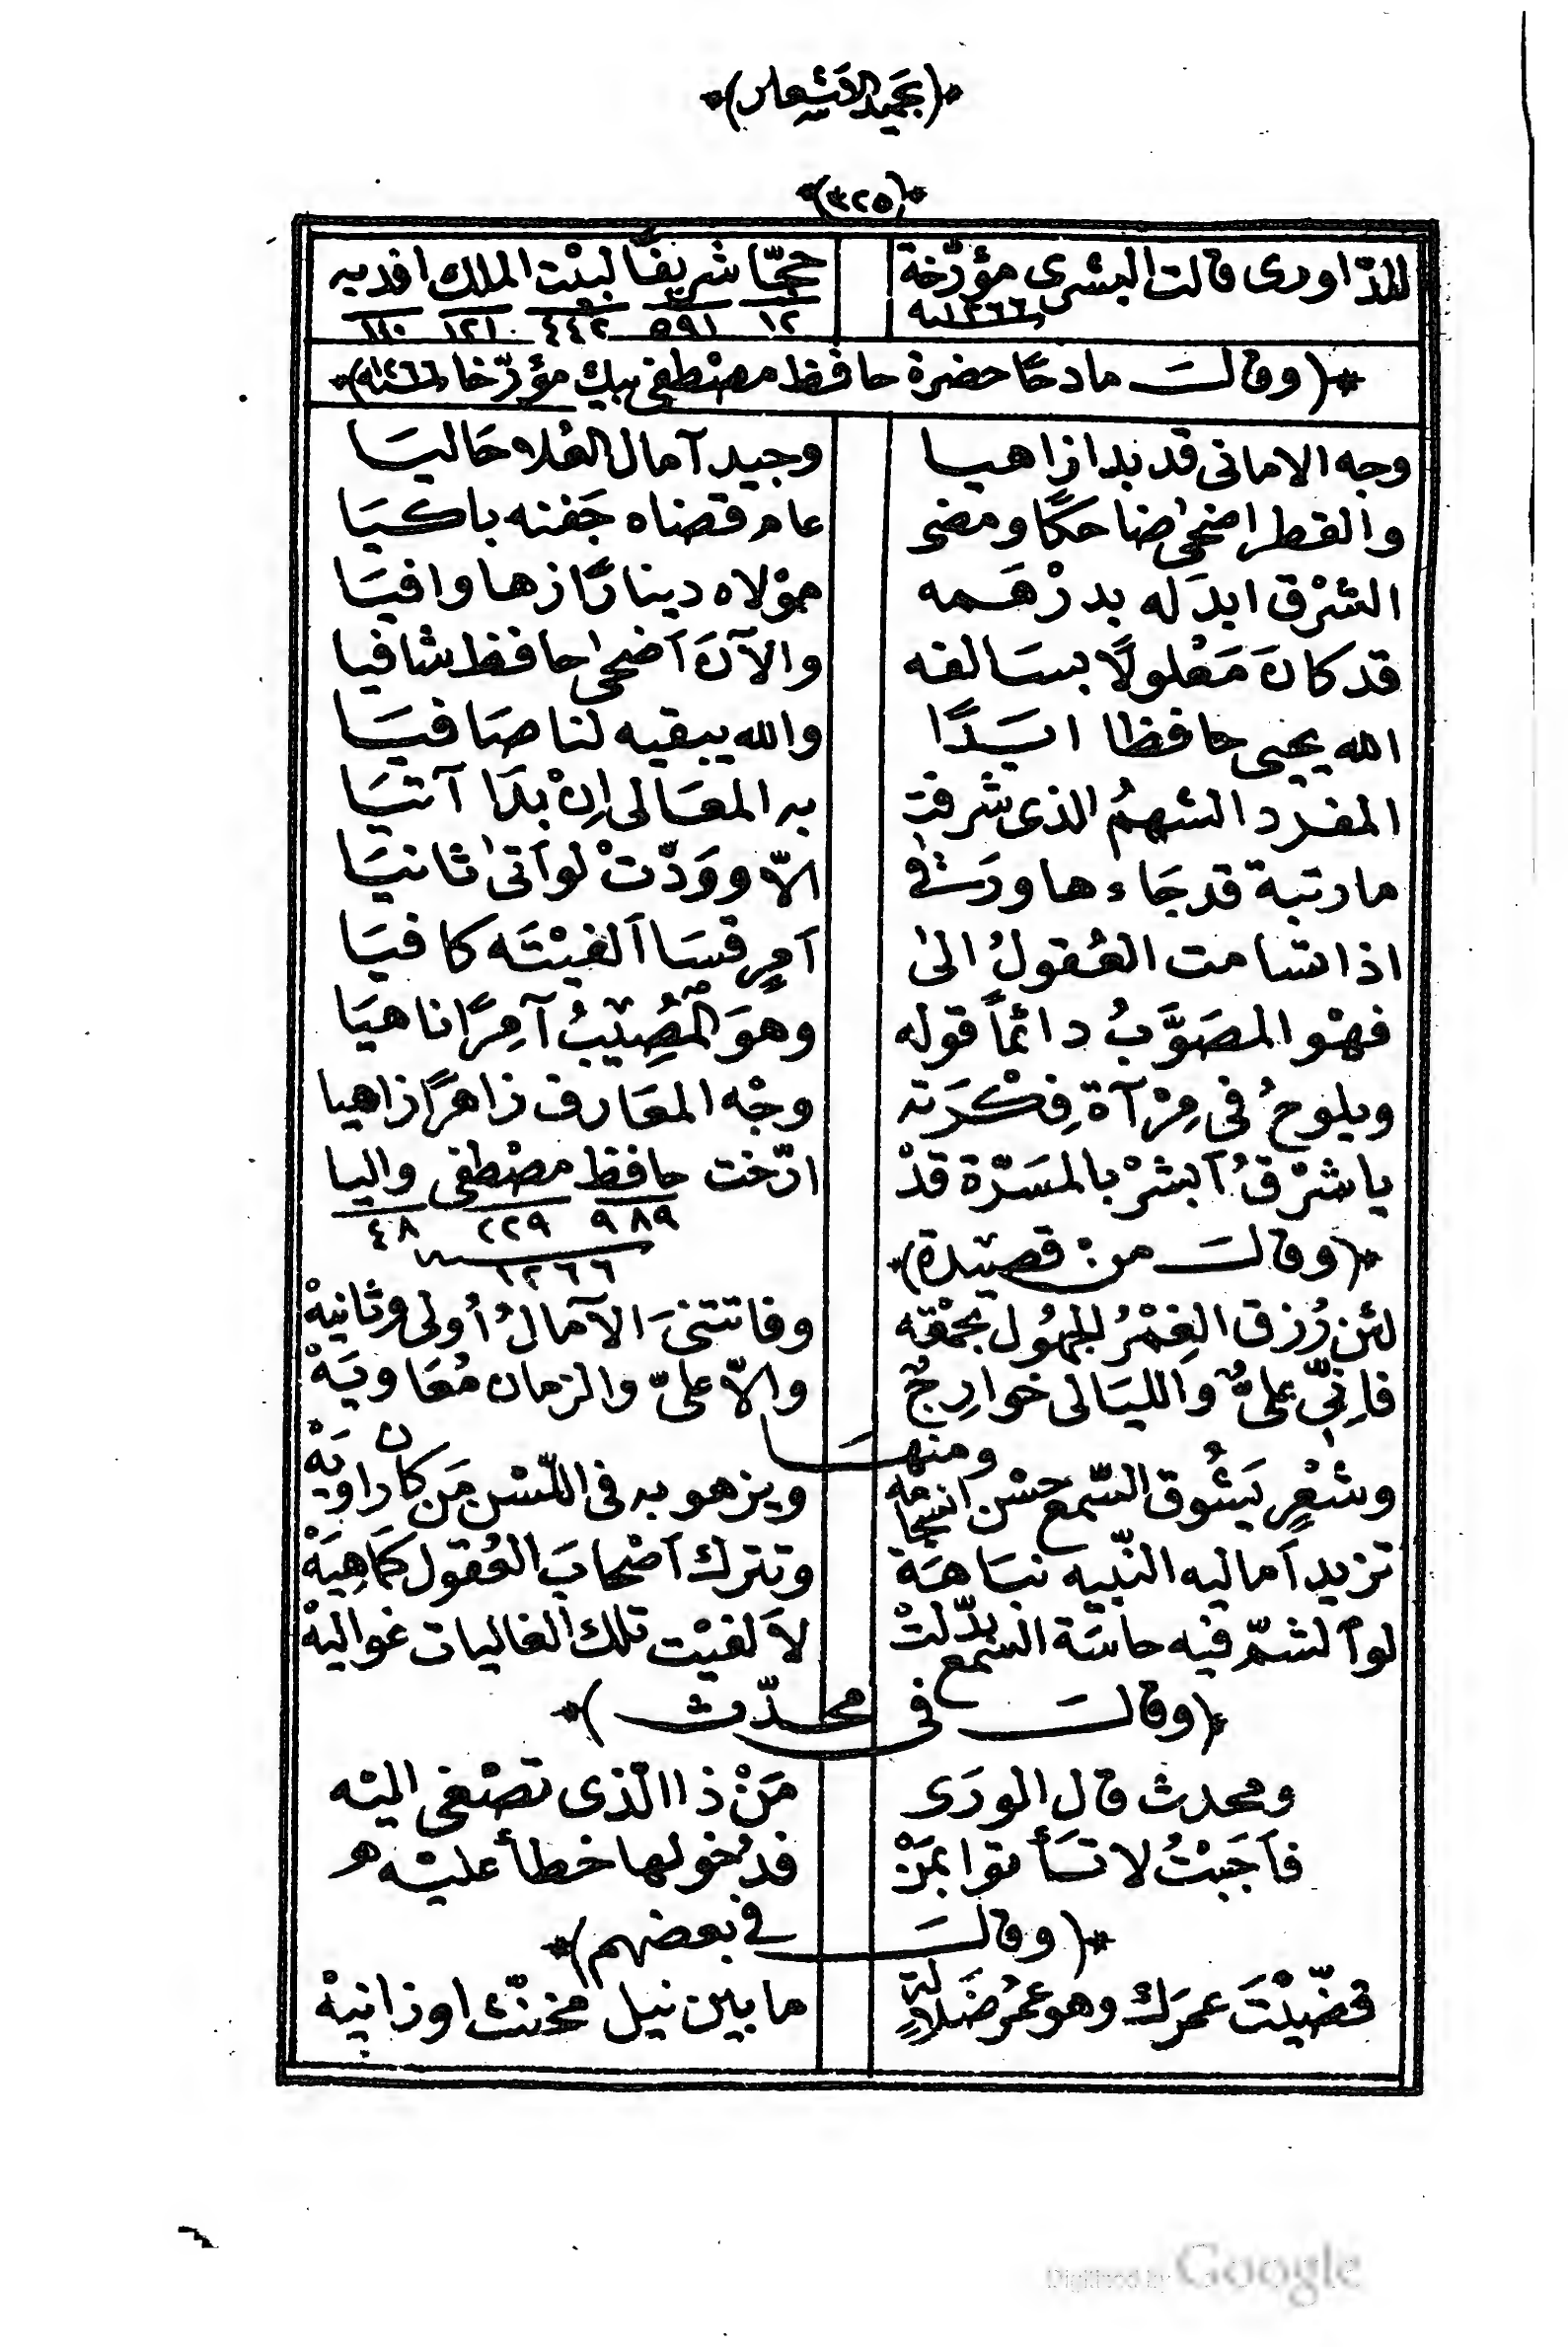 *(بحميد الاشعار)*
*(٣٢٥)*
للدّاورى قالت البشرى مؤرّخة حجّا شريفًا لبيْت الملك افديه
سنة ١٢٦٦ ١٢ ٥٩١ ٤٤٢ ١٢١ ١٠٠
*(وقالـــ مادحًا حضرة حافظ مصْطفى بيك مؤرّخا سنة ١٢٦٦)*
وجه الامانى قد بدا زاهيا وجيد آمال العُلا حَاليَا
والقطر اضحىٰ ضاحكًا ومضى عام قضناه جَفنه باكيَا
الشرْق ابدَله بدرْهَمه مولاه دينارًا زها وافيَا
قد كانَ مَعْلولًا بسَالفه والآنَ أضحىٰ حافظ شافيا
الله يحيى حافظا ابَدًا والله يبقيه لنا صَافيَا
المفرد الشهمُ الذى شرفت به المعَالى اِنْ بَدَا آتيَا
مارتبة قد جَاءها ورَقٰى الاّ ووَدّتْ لو أتىٰ ثانيَا
اذا تسامت العُقولُ الىٰ اَمرٍ قسَا اَلفيْتَه كافيَا
فهْو المصَوَّبُ دائماً قوله وهوَ المُصِيْبُ آمِرًا ناهيَا
ويلوحُ فى مِرْآةِ فِكْرَته وجْه المعَارف زاهرًا زاهيا
يا شرْقُ اَبشرْ بالمسَرّة قدْ ارّخت حافظ مصْطفى واليا
٩٨٩ ٢٢٩ ٤٨
*(وقالـــ من قصيْدة)*
١٢٦٦
لئن رُزق الغِمْرُ الجهُول بحمْقه وفاتتنىَ الآمالُ أُولى وثانيهْ
فاِنّى علىٌّ والليَالى خوارِجٌ والاّ علىّ والزمان مُعَاويَهْ
ومنهـــَا
وشعْرٍ يَشُوق السّمع حسْن انسجامه ويزهو به فى اللّسْن مَن كان راويَهْ
تزيد اَماليه النّبيه نبَاهَة وتترك اَصْحابَ العُقول كَمَاهِيَهْ
لو اَلشمّ فيه حاسّة السّمع بدّلتْ لاَلفيْت تلك الغاليات غواليهْ
*(وقالـــ فى محدّث)*
ومحدث قال الورَى مَنْ ذا الّذى تصْغى اليْه
فاَجَبْتُ لا تَسأتوا بمَنْ فدخولها خطأ عليْه
*(وقالـــ فى بعضهم)*
قضّيْتَ عمرَك وهو عمرُ ضَلالةٍ ما بين نيل مخنّث او زانيهْ
Digitized by Google